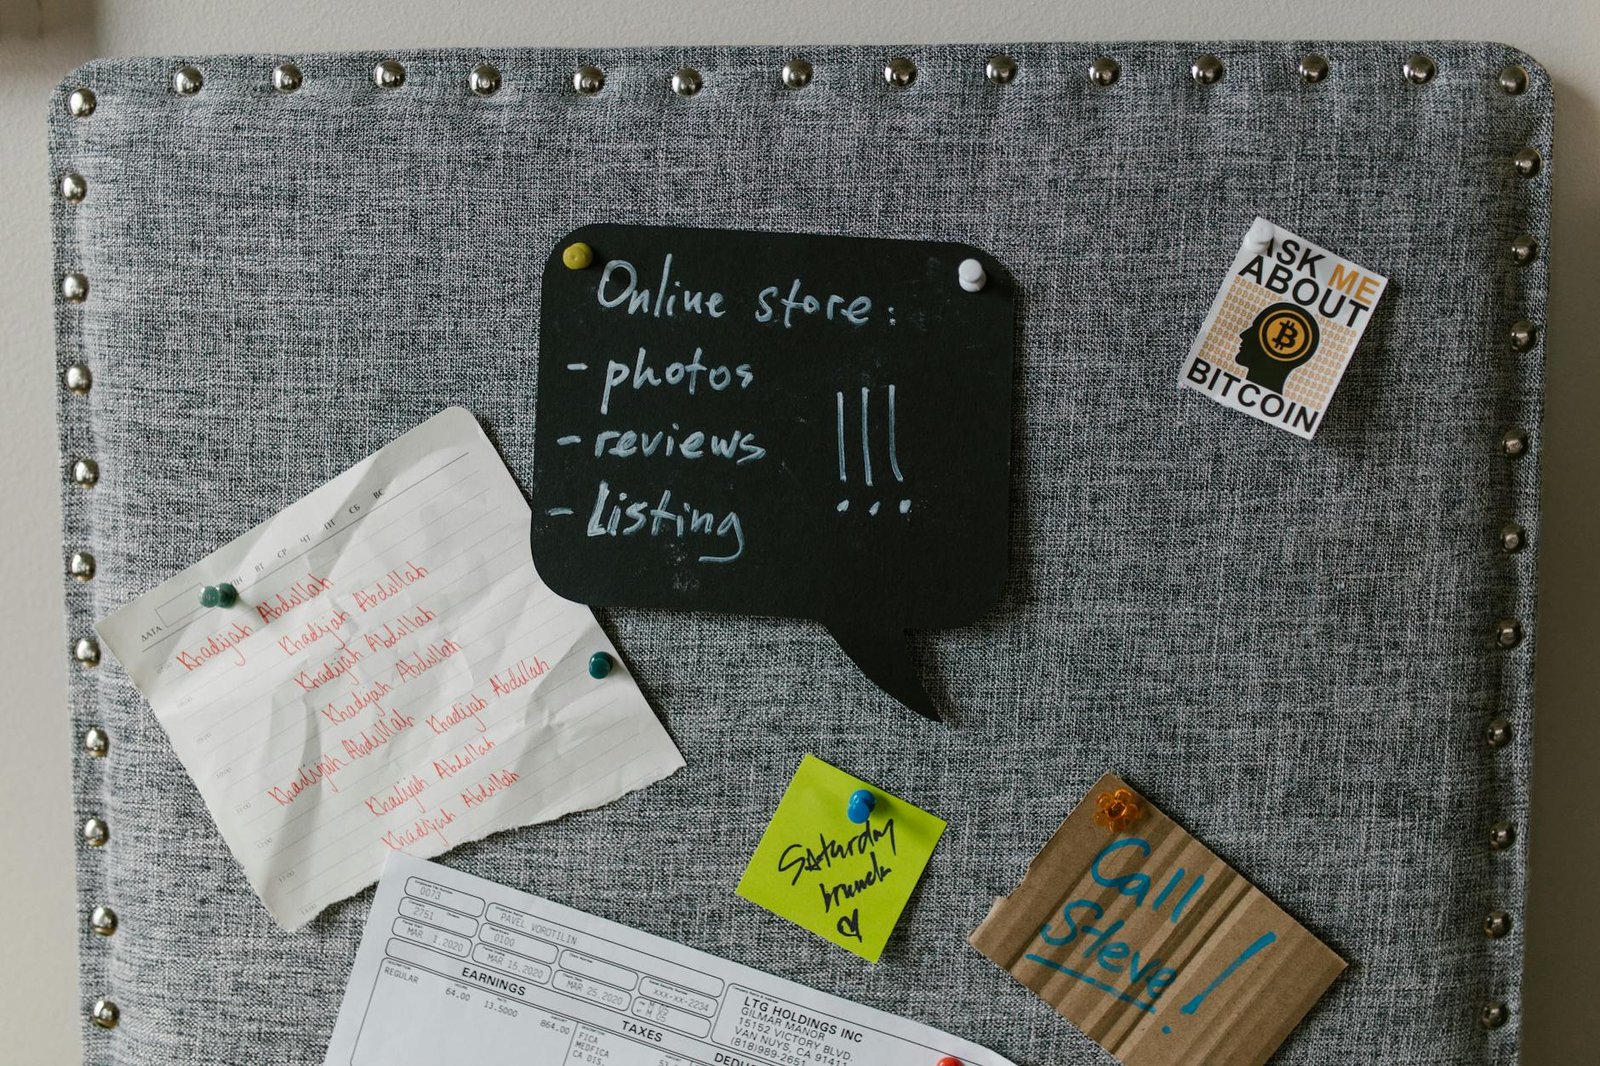 Online store:
- photos
- reviews
- Listing
!!!
ASK ME
ABOUT
BITCOIN
ДАТА
ПН ВТ СР ЧТ ПТ СБ ВС
Khadijah Abdullah
Khadijah Abdullah
Khadijah Abdullah
Khadijah Abdullah
Khadijah Abdullah Khadijah Abdullah
Khadijah Abdullah
Khadijah Abdullah
Saturday
brunch
Call
Steve!
0073
PAVEL VOROTILIN
2751
0100
MAR 1.2020
MAR 15.2020
MAR 25.2020
XXX-XX-2234
EARNINGS
REGULAR
64.00
13.5000
864.00
TAXES
FICA
MEDFICA
CA DIS.
LTG HOLDINGS INC
GILMAR MANOR
15152 VICTORY BLVD.
VAN NUYS, CA 91411
(818)989-2651